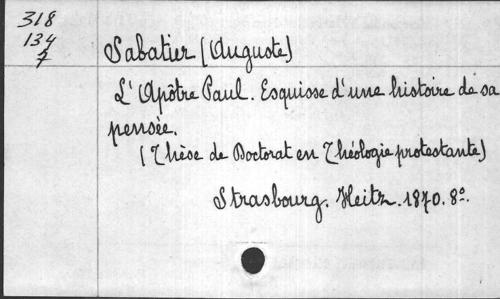 318
134
7
Sabatier (Auguste)
L'Apôtre Paul. Esquisse d'une histoire de sa
pensée.
(Thèse de Doctorat en Théologie protestante)
Strasbourg. Heitz. 1870. 8º.